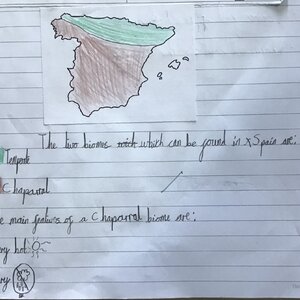 The two biomes which can be found in Spain are:
Temperate
Chaparral
main features of a Chaparral biome are:
hot